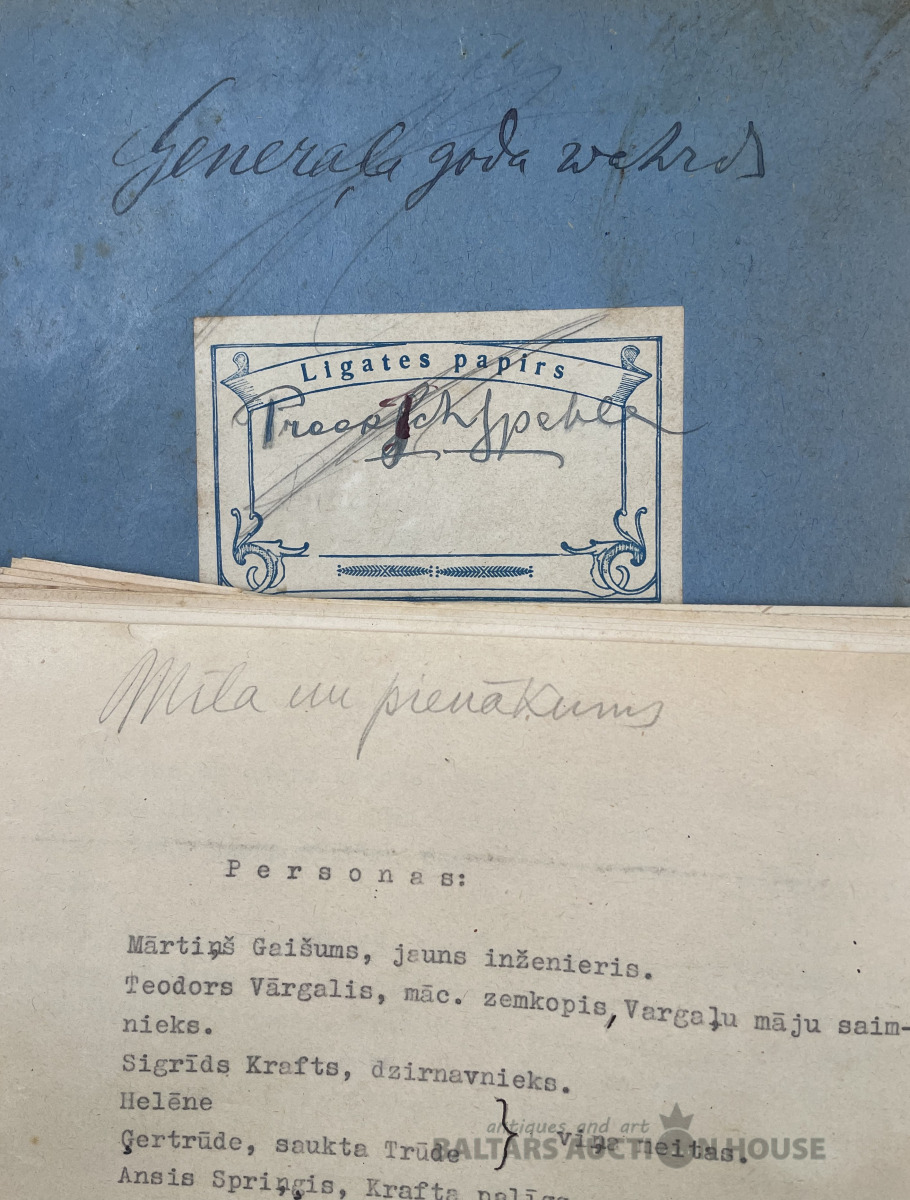 Ģeneraļa goda wahrds
Ligates papirs
Mīla un pienākums
Personas:
Mārtiņš Gaišums, jauns inženieris.
Teodors Vārgalis, māc. zemkopis, Vargaļu māju saim-
nieks.
Sigrīds Krafts, dzirnavnieks.
Helēne
Ģertrūde, saukta Trūde } viņa meitas.
Ansis Spriņģis, Krafta palīgs
antiques and art
BALTARS AUCTION HOUSE